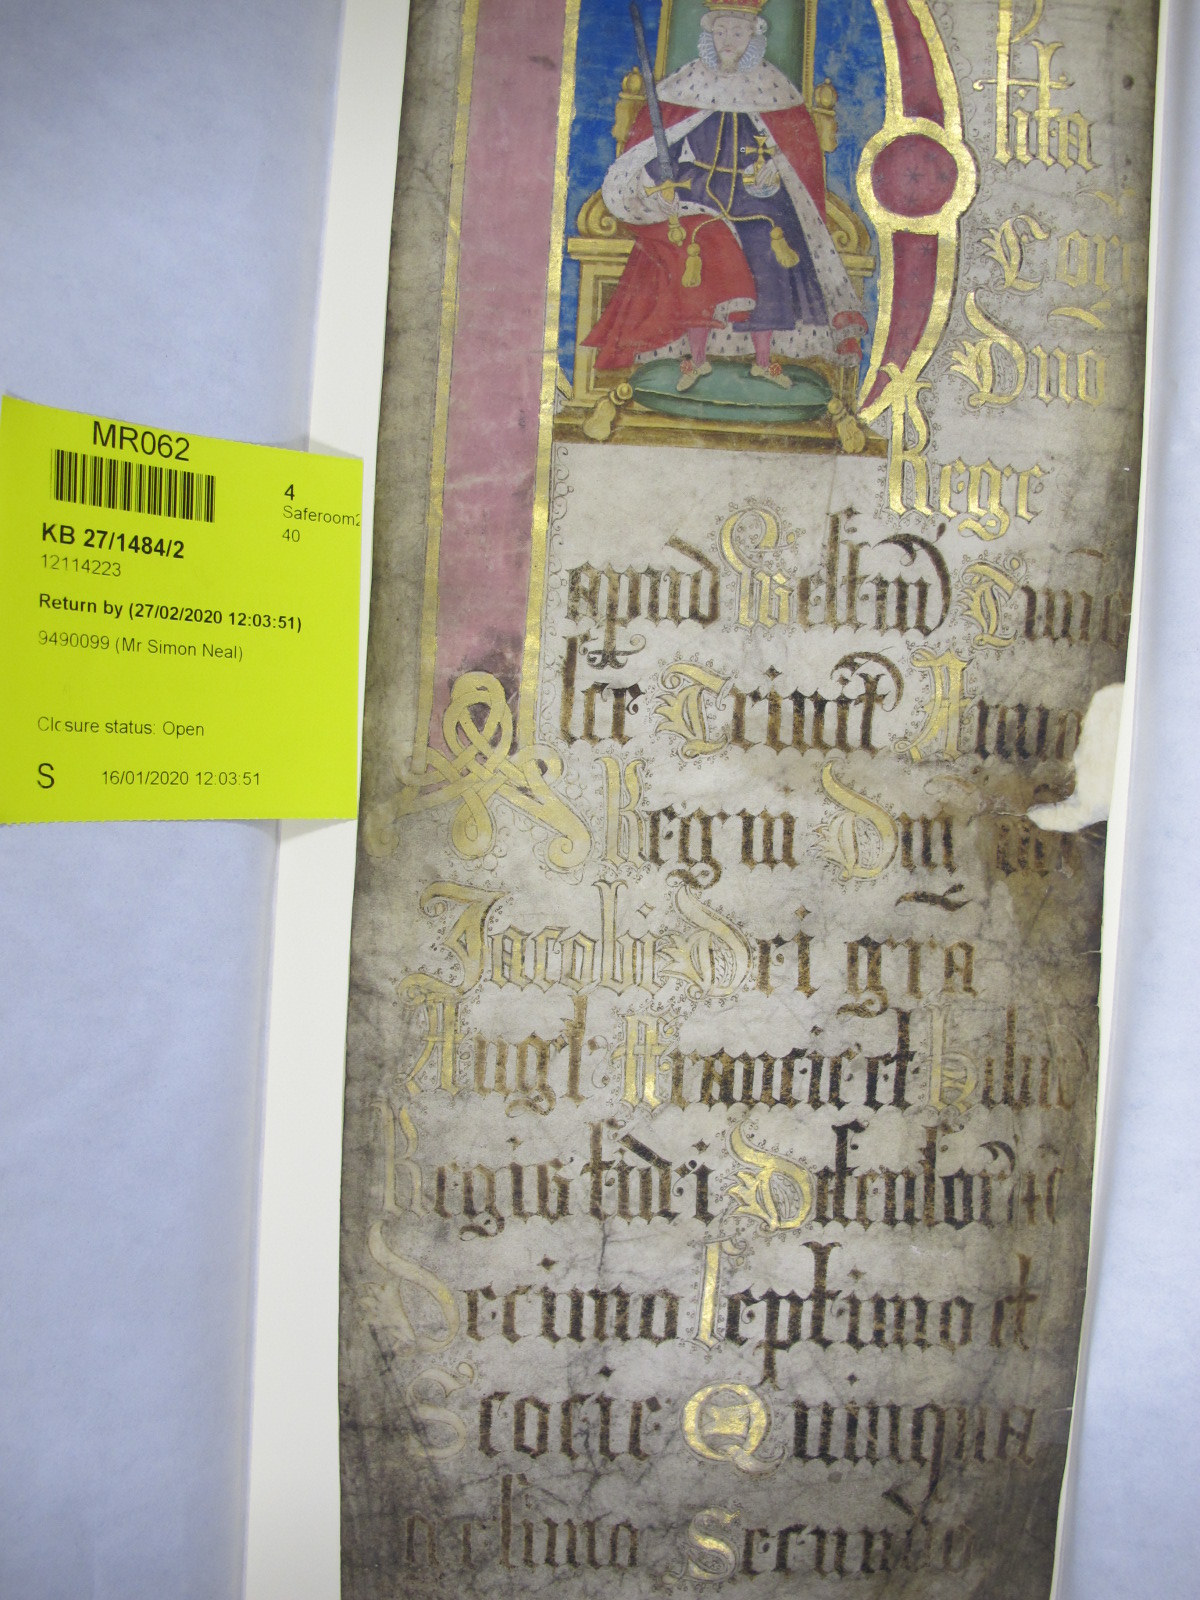 MR062
4
Saferoom2
40
KB 27/1484/2
12114223
Return by (27/02/2020 12:03:51)
9490099 (Mr Simon Neal)
Closure status: Open
S 16/01/2020 12:03:51
lita
Cor
Dno
Rege
apud Westm
sce Trinit Anno
Regni Dni
Jacobi Dei gra
Angl Francie et Hibnie
Regis fidei Defensor
Decimo septimo et
Scocie Quinqua
gesimo Secundo